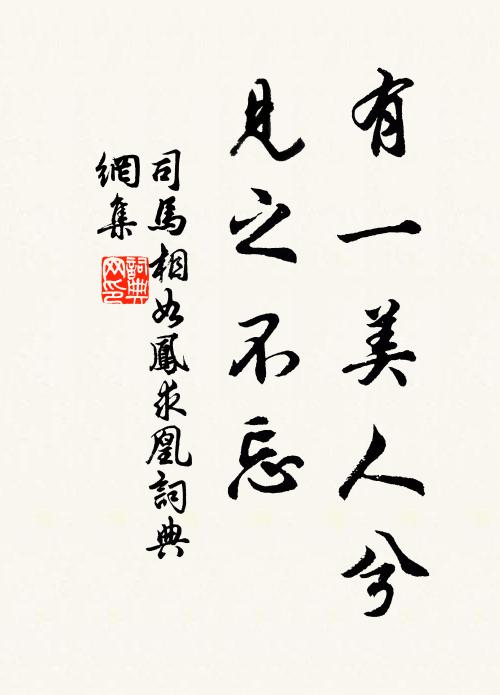 有一美人兮
見之不忘
司馬相如鳳求凰詞典
網集
詞典
网印